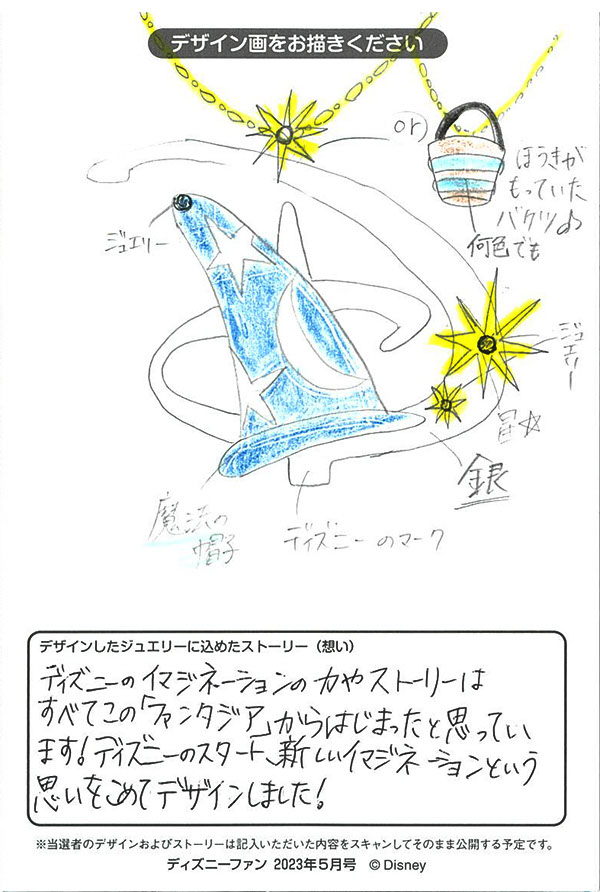 デザイン画をお描きください
or)
ほうきが
もっていた
バケツ♪
何色でも
ジュエリー
ジュエリー
星☆
銀
魔法の
帽子
ディズニーのマーク
デザインしたジュエリーに込めたストーリー（想い）
ディズニーのイマジネーションの力やストーリーは
すべてこの「ファンタジア」からはじまったと思ってい
ます!ディズニーのスタート、新しいイマジネーションという
思いをこめてデザインしました!
※当選者のデザインおよびストーリーは記入いただいた内容をスキャンしてそのまま公開する予定です。
ディズニーファン 2023年5月号 ©Disney